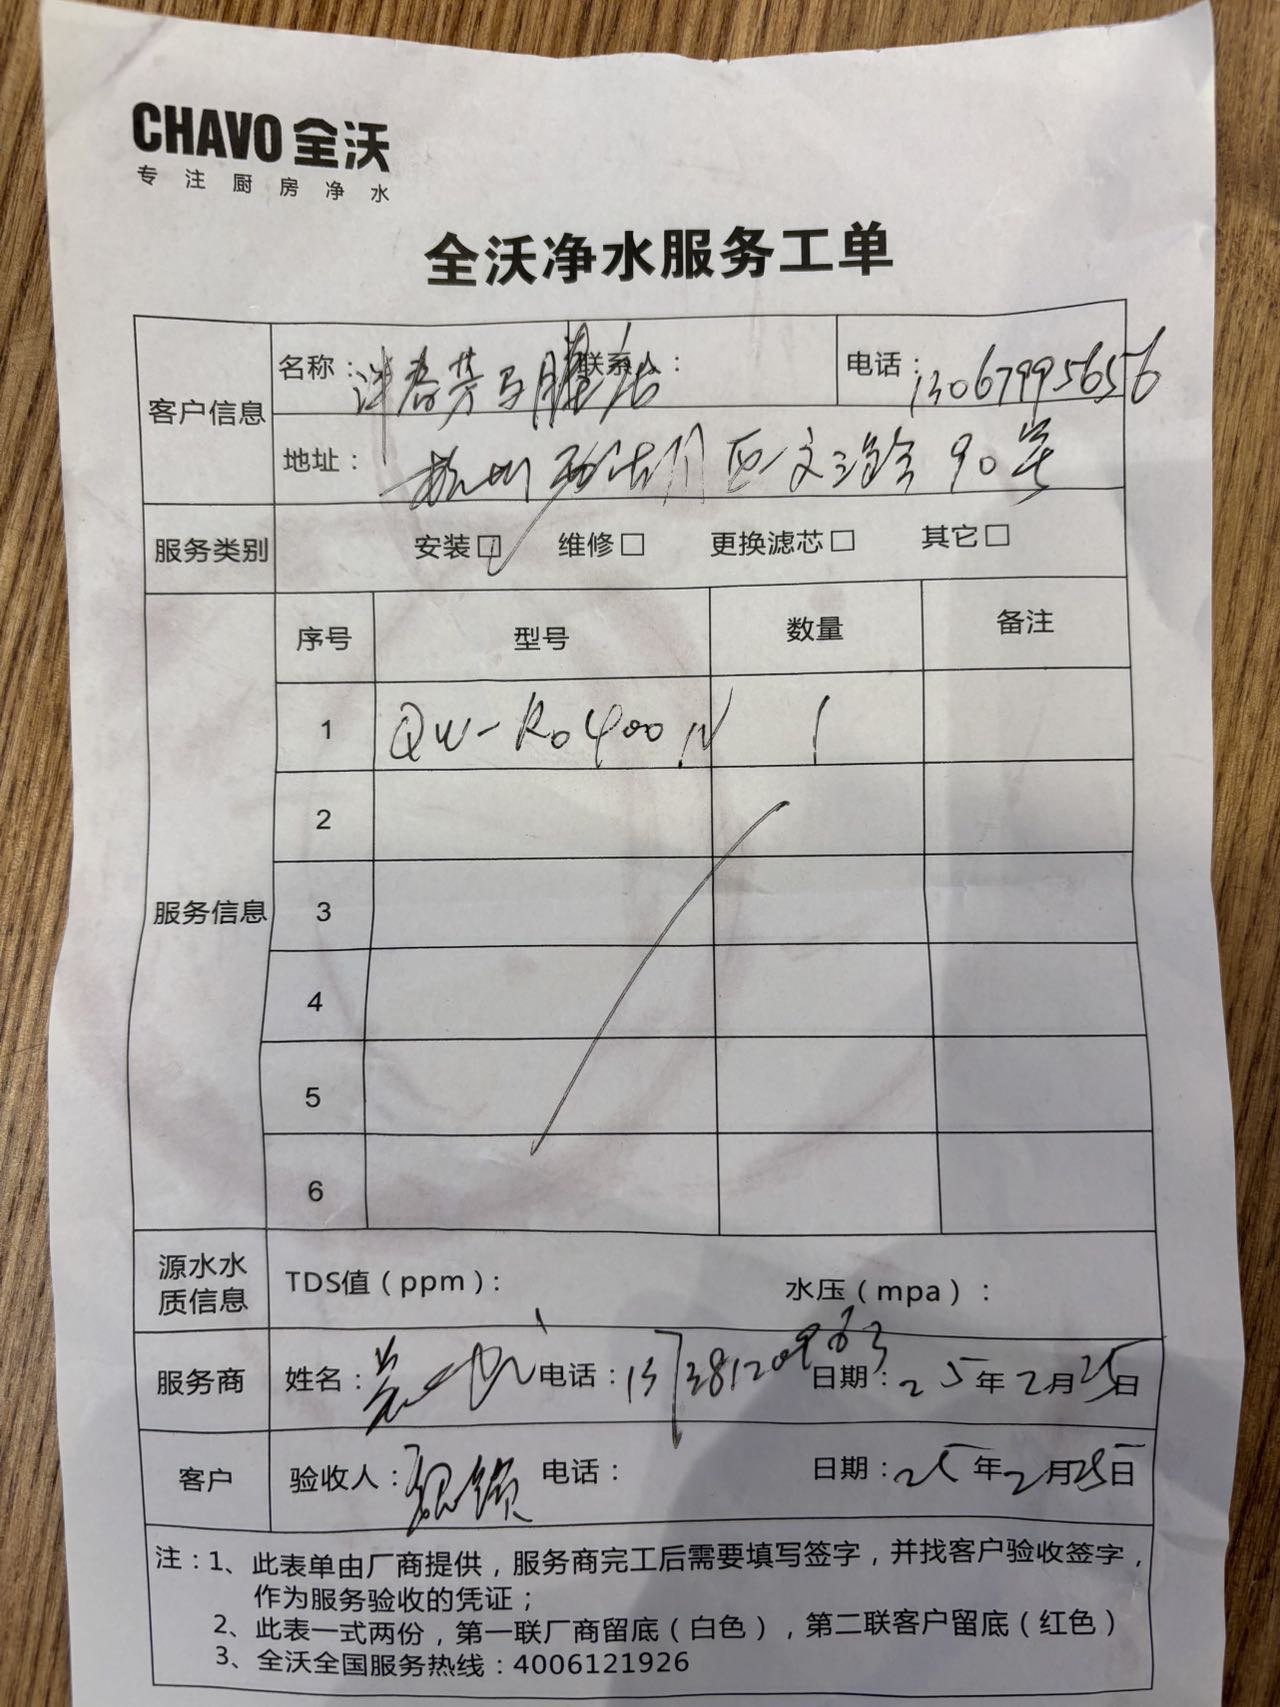 CHAVO 全沃
专注厨房净水
全沃净水服务工单
客户信息
名称：
联系人：
电话：13067995656
地址：杭州 90号
服务类别
安装☑ 维修□ 更换滤芯□ 其它□
服务信息
序号 型号 数量 备注
1 QW-RO400N 1
2
3
4
5
6
源水水质信息
TDS值（ppm）： 水压（mpa）：
服务商 姓名： 电话： 日期：25年2月25日
客户 验收人： 电话： 日期：25年2月25日
注：1、此表单由厂商提供，服务商完工后需要填写签字，并找客户验收签字，
作为服务验收的凭证；
2、此表一式两份，第一联厂商留底（白色），第二联客户留底（红色）
3、全沃全国服务热线：4006121926